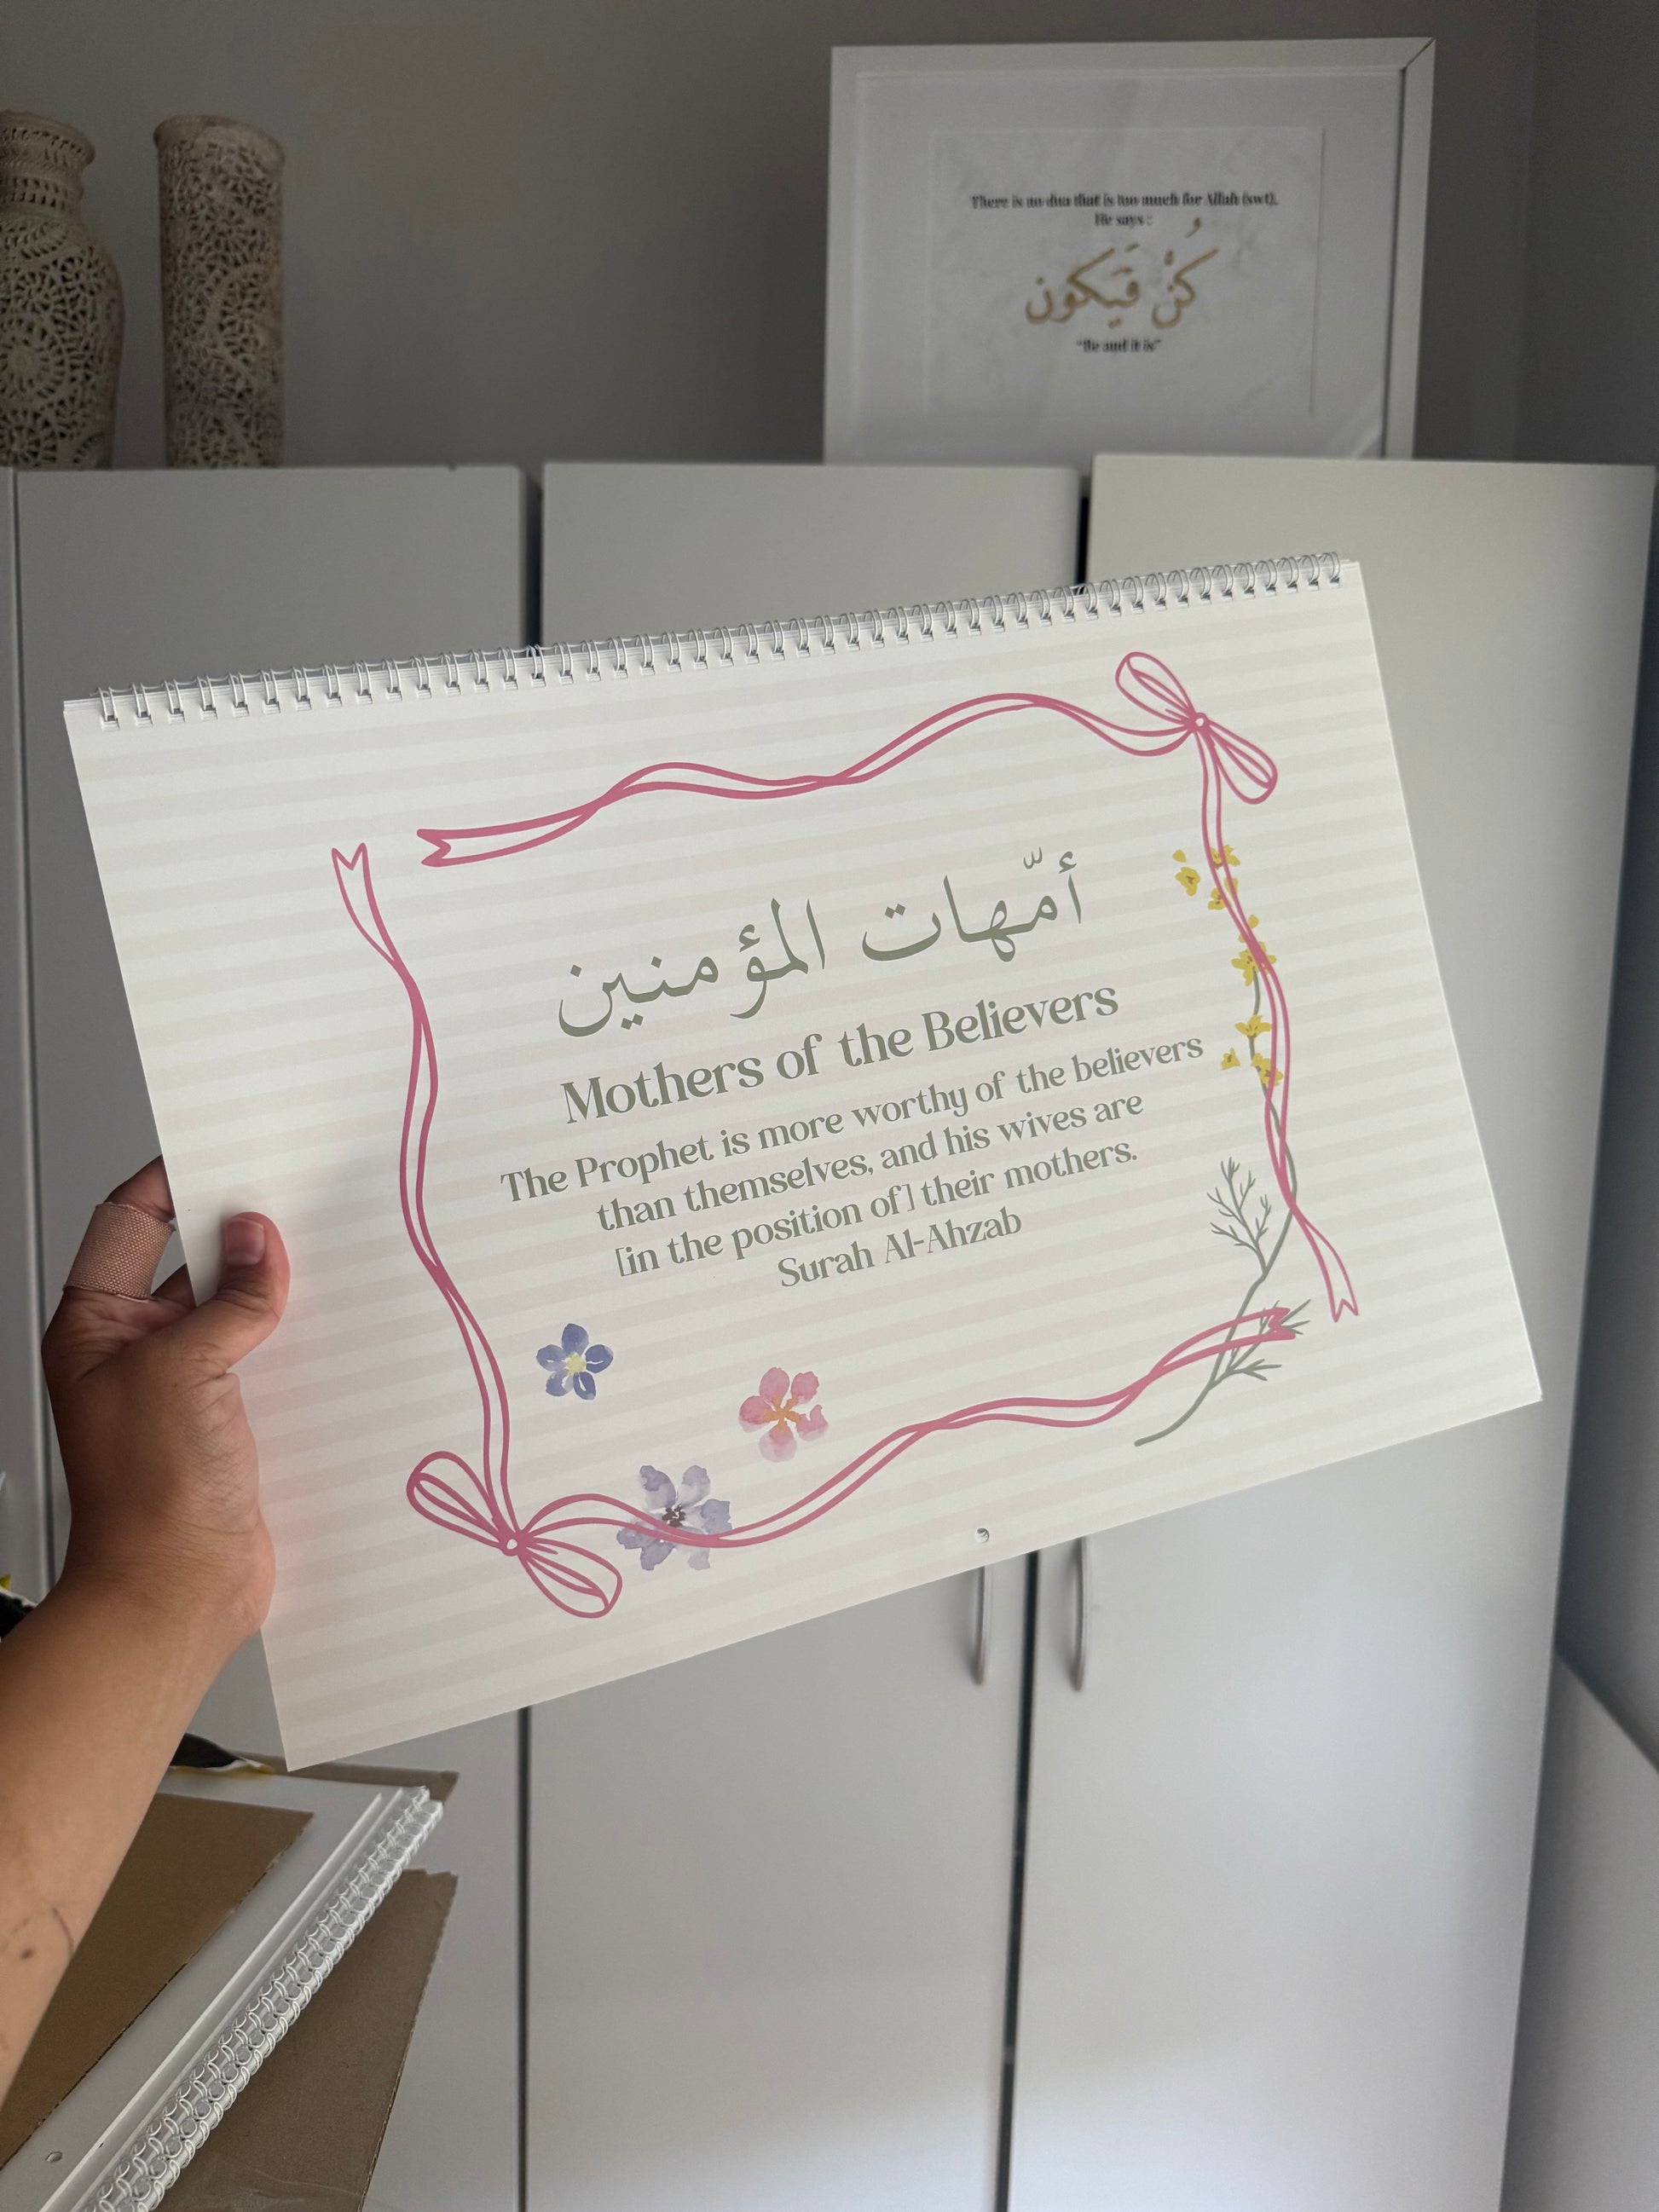 There is no dua that is too much for Allah (swt).
He says :
كُنْ فَيَكُونُ
"Be and it is"
أمّهات المؤمنين
Mothers of the Believers
The Prophet is more worthy of the believers
than themselves, and his wives are
[in the position of] their mothers.
Surah Al-Ahzab